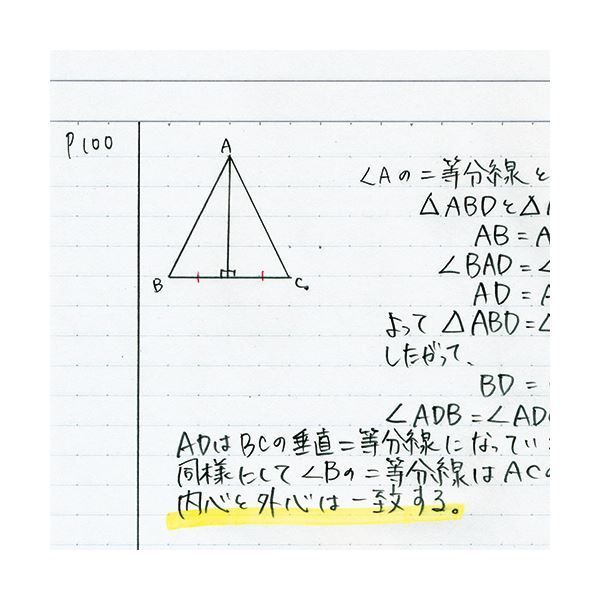 P100
A
B
C
∠Aの二等分線と
△ABDと△
AB=A
∠BAD=∠
AD=A
よって △ABD=∠
したがって、
BD=
∠ADB=∠AD
ADはBCの垂直二等分線になってい
同様にして∠Bの二等分線はACの
内心と外心は一致する。